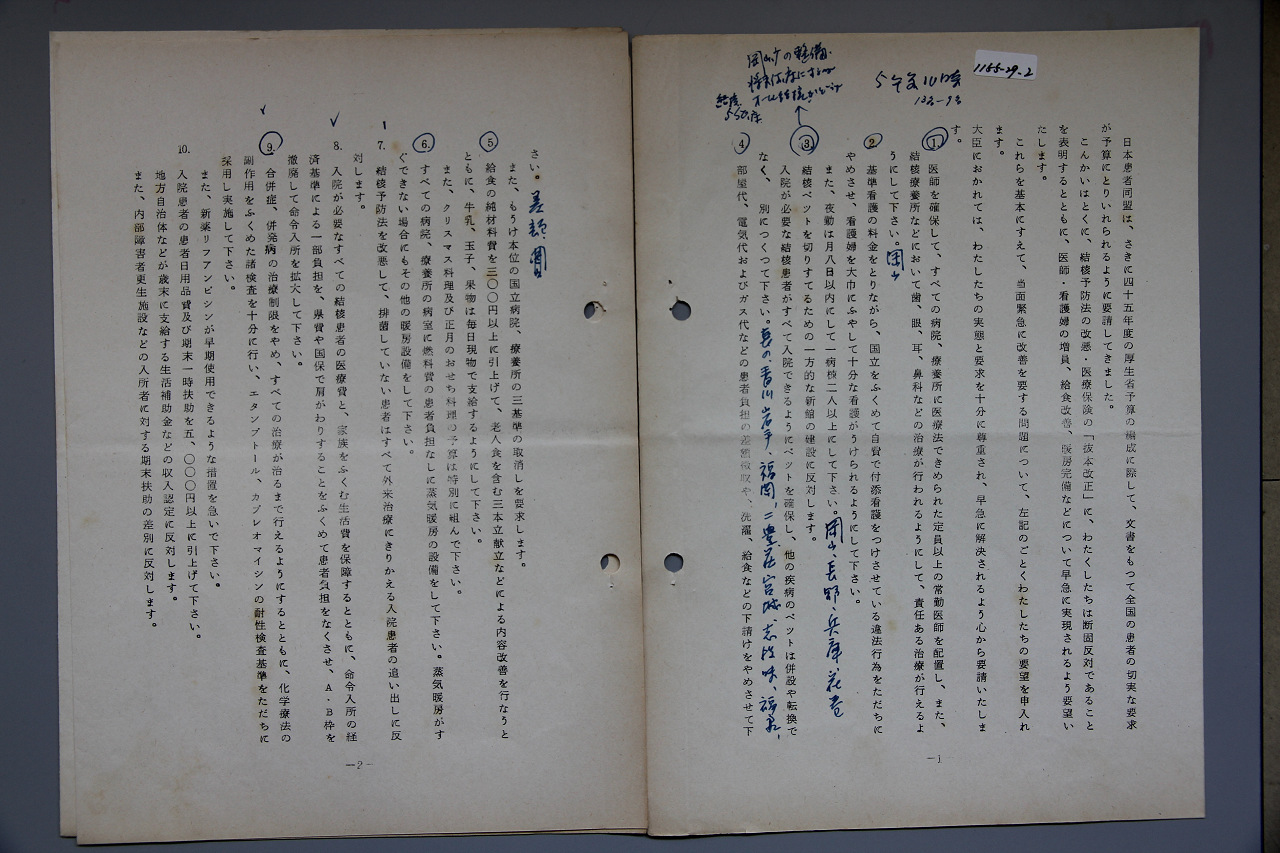 1155-29-2
日本患者同盟は、さきに四十五年度の厚生省予算の編成に際して、文書をもつて全国の患者の切実な要求
が予算にとりいれられるように要請してきました。
こんかいはとくに、結核予防法の改悪・医療保険の「抜本改正」に、わたくしたちは断固反対であること
を表明するとともに、医師・看護婦の増員、給食改善、暖房完備などについて早急に実現されるよう要望い
たします。
これらを基本にすえて、当面緊急に改善を要する問題について、左記のごとくわたしたちの要望を申入れ
ます。
大臣におかれては、わたしたちの実態と要求を十分に尊重され、早急に解決されるよう心から要請いたしま
す。
1. 医師を確保して、すべての病院、療養所に医療法できめられた定員以上の常勤医師を配置し、また、
結核療養所などにおいて歯、眼、耳、鼻科などの治療が行われるようにして、責任ある治療が行えるよ
うにして下さい。岡山
2. 基準看護の料金をとりながら、国立をふくめて自費で付添看護をつけさせている違法行為をただちに
やめさせ、看護婦を大巾にふやして十分な看護がうけられるようにして下さい。
また、夜勤は月八日以内にして一病棟二人以上にして下さい。岡山、長野、兵庫、花巻
3. 結核ベットを切りすてるための一方的な新館の建設に反対します。
入院が必要な結核患者がすべて入院できるようにベットを確保し、他の疾病のベットは併設や転換で
なく、別につくつて下さい。長の、香川、岩手、福岡、二豊荘、宮城、志段味、福泉、
4. 部屋代、電気代およびガス代などの患者負担の差額徴収や、洗濯、給食などの下請けをやめさせて下
－1－
さい。差額
また、もうけ本位の国立病院、療養所の三基準の取消しを要求します。
5. 給食の純材料費を三〇〇円以上に引上げて、老人食を含む三本立献立などによる内容改善を行なうと
ともに、牛乳、玉子、果物は毎日現物で支給するようにして下さい。
また、クリスマス料理及び正月のおせち料理の予算は特別に組んで下さい。
6. すべての病院、療養所の病室に燃料費の患者負担なしに蒸気暖房の設備をして下さい。蒸気暖房がす
ぐできない場合にもその他の暖房設備をして下さい。
7. 結核予防法を改悪して、排菌していない患者はすべて外来治療にきりかえる入院患者の追い出しに反
対します。
8. 入院が必要なすべての結核患者の医療費と、家族をふくむ生活費を保障するとともに、命令入所の経
済基準による一部負担を、県費や国保で肩がわりすることをふくめて患者負担をなくさせ、A・B枠を
撤廃して命令入所を拡大して下さい。
9. 合併症、併発病の治療制限をやめ、すべての治療が治るまで行えるようにするとともに、化学療法の
副作用をふくめた諸検査を十分に行い、エタンブトール、カプレオマイシンの耐性検査基準をただちに
採用し実施して下さい。
また、新薬リファンピシンが早期使用できるような措置を急いで下さい。
10. 入院患者の患者日用品費及び期末一時扶助を五、〇〇〇円以上に引上げて下さい。
地方自治体などが歳末に支給する生活補助金などの収入認定に反対します。
また、内部障害者更生施設などの入所者に対する期末扶助の差別に反対します。
－2－